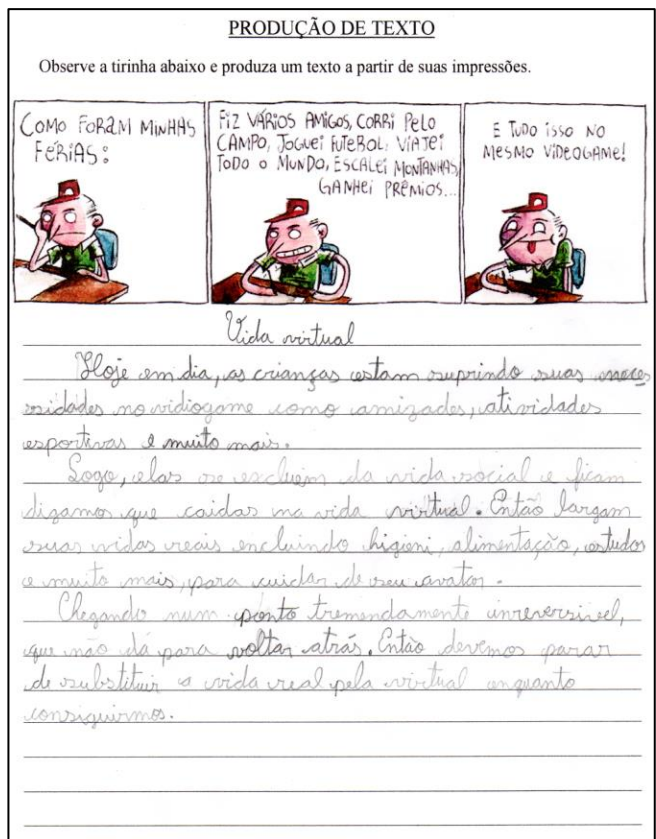 PRODUÇÃO DE TEXTO
Observe a tirinha abaixo e produza um texto a partir de suas impressões.
COMO FORAM MINHAS
FÉRIAS:
FIZ VÁRIOS AMIGOS, CORRI PELO
CAMPO, JOGUEI FUTEBOL, VIAJEI
TODO O MUNDO, ESCALEI MONTANHAS,
GANHEI PRÊMIOS...
E TUDO ISSO NO
MESMO VIDEOGAME!
Vida virtual
Hoje em dia, as crianças estam suprindo suas neces
sidades no vidiogame como amizades, atividades
esportivas e muito mais.
Logo, elas se excluem da vida social e ficam
digamos que caidas na vida virtual. Então largam
suas vidas reais encluindo higieni, alimentação, estudos
e muito mais, para cuidar de seu avatar.
Chegando num ponto tremendamente inreversivel,
que não dá para voltar atrás. Então devemos parar
de substituir a vida real pela virtual enquanto
consiguirmos.